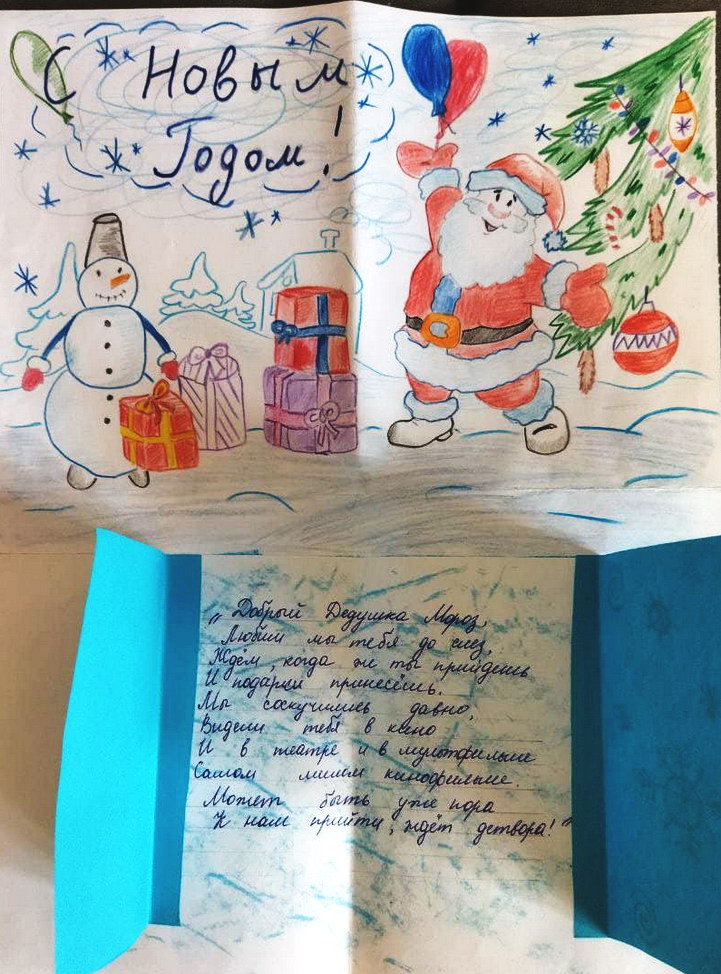 С Новым
Годом!
„Добрый Дедушка Мороз,
Любим мы тебя до слез,
Ждём, когда же ты прийдешь
И подарки принесёшь.
Мы соскучились давно,
Видели тебя в кино
И в театре и в мультфильме
Самом милом кинофильме.
Может быть уже пора
К нам прийти, ждёт детвора!"